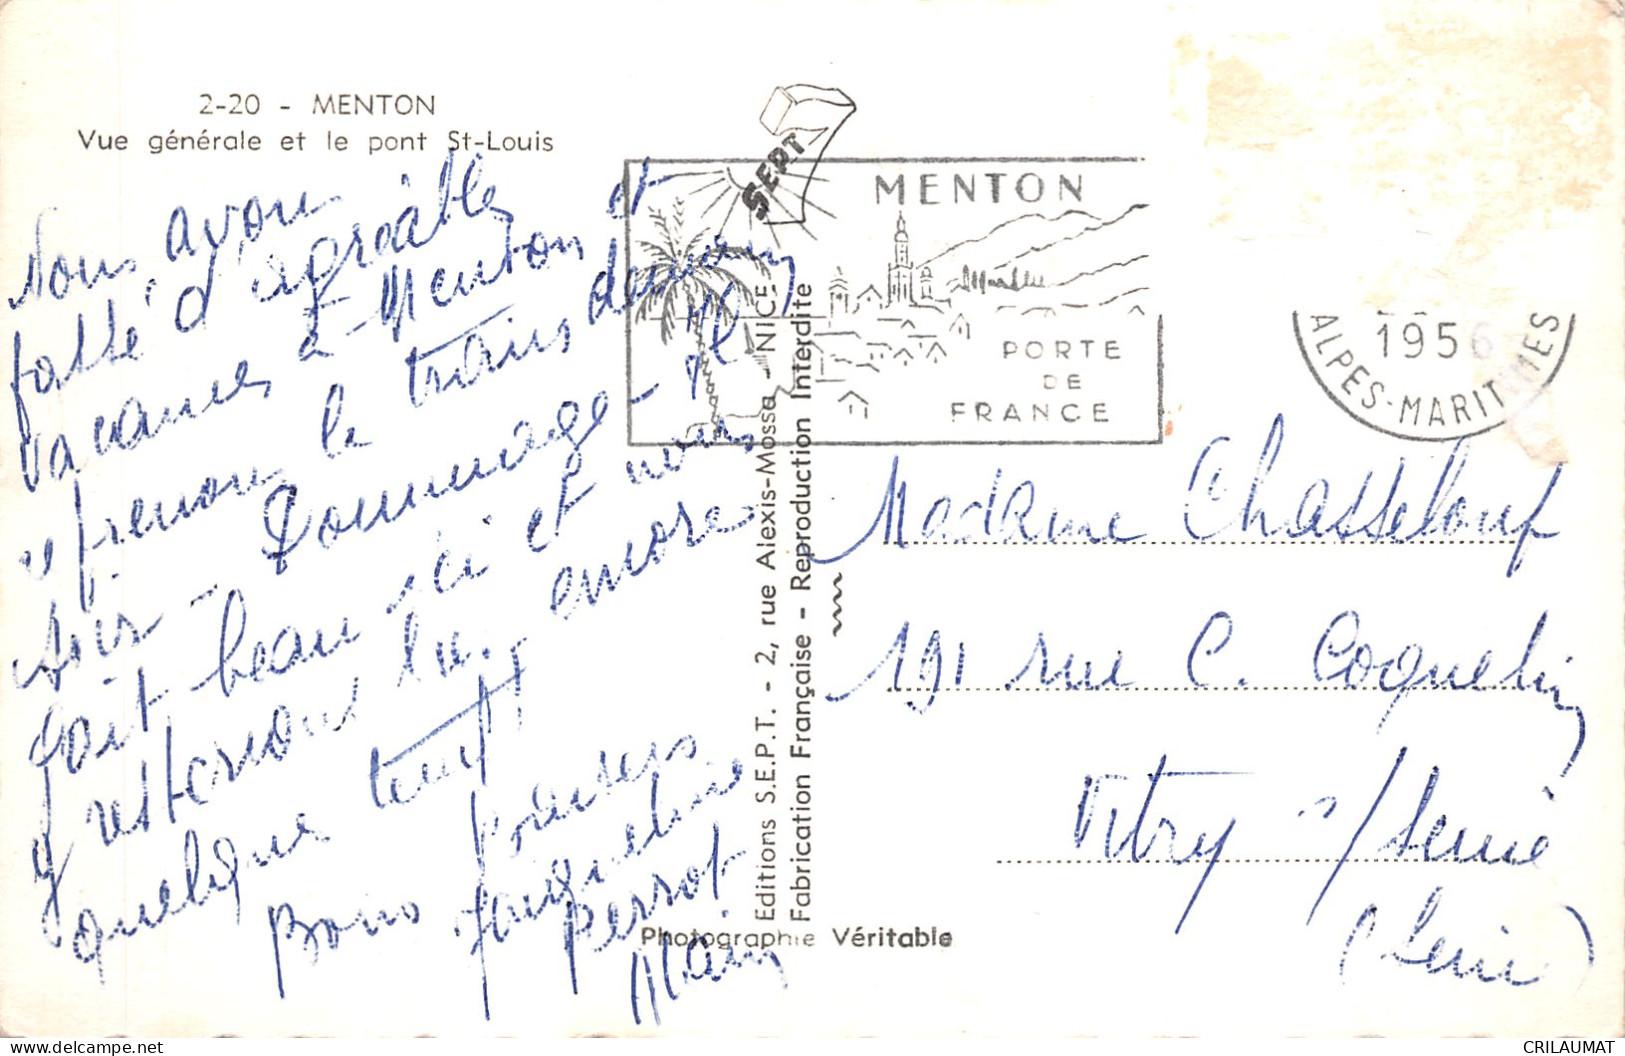 2-20 - MENTON
Vue générale et le pont St-Louis
Nous avons
passé d'agréables
vacances à Menton et
reprenons le train demain
soir - Dommage - il
fait beau ici et nous
y resterions bien encore
quelque temps
Bons baisers
Jacqueline
Perrot
Alain
SEPT
MENTON
PORTE
DE
FRANCE
1956
ALPES-MARITIMES
Editions S.E.P.T. - 2, rue Alexis-Mossa - NICE
Fabrication Française - Reproduction Interdite
Photographie Véritable
Madame Chasselouf
191 rue C. Coquelin
Vitry s/Seine
(Seine)
CRILAUMAT